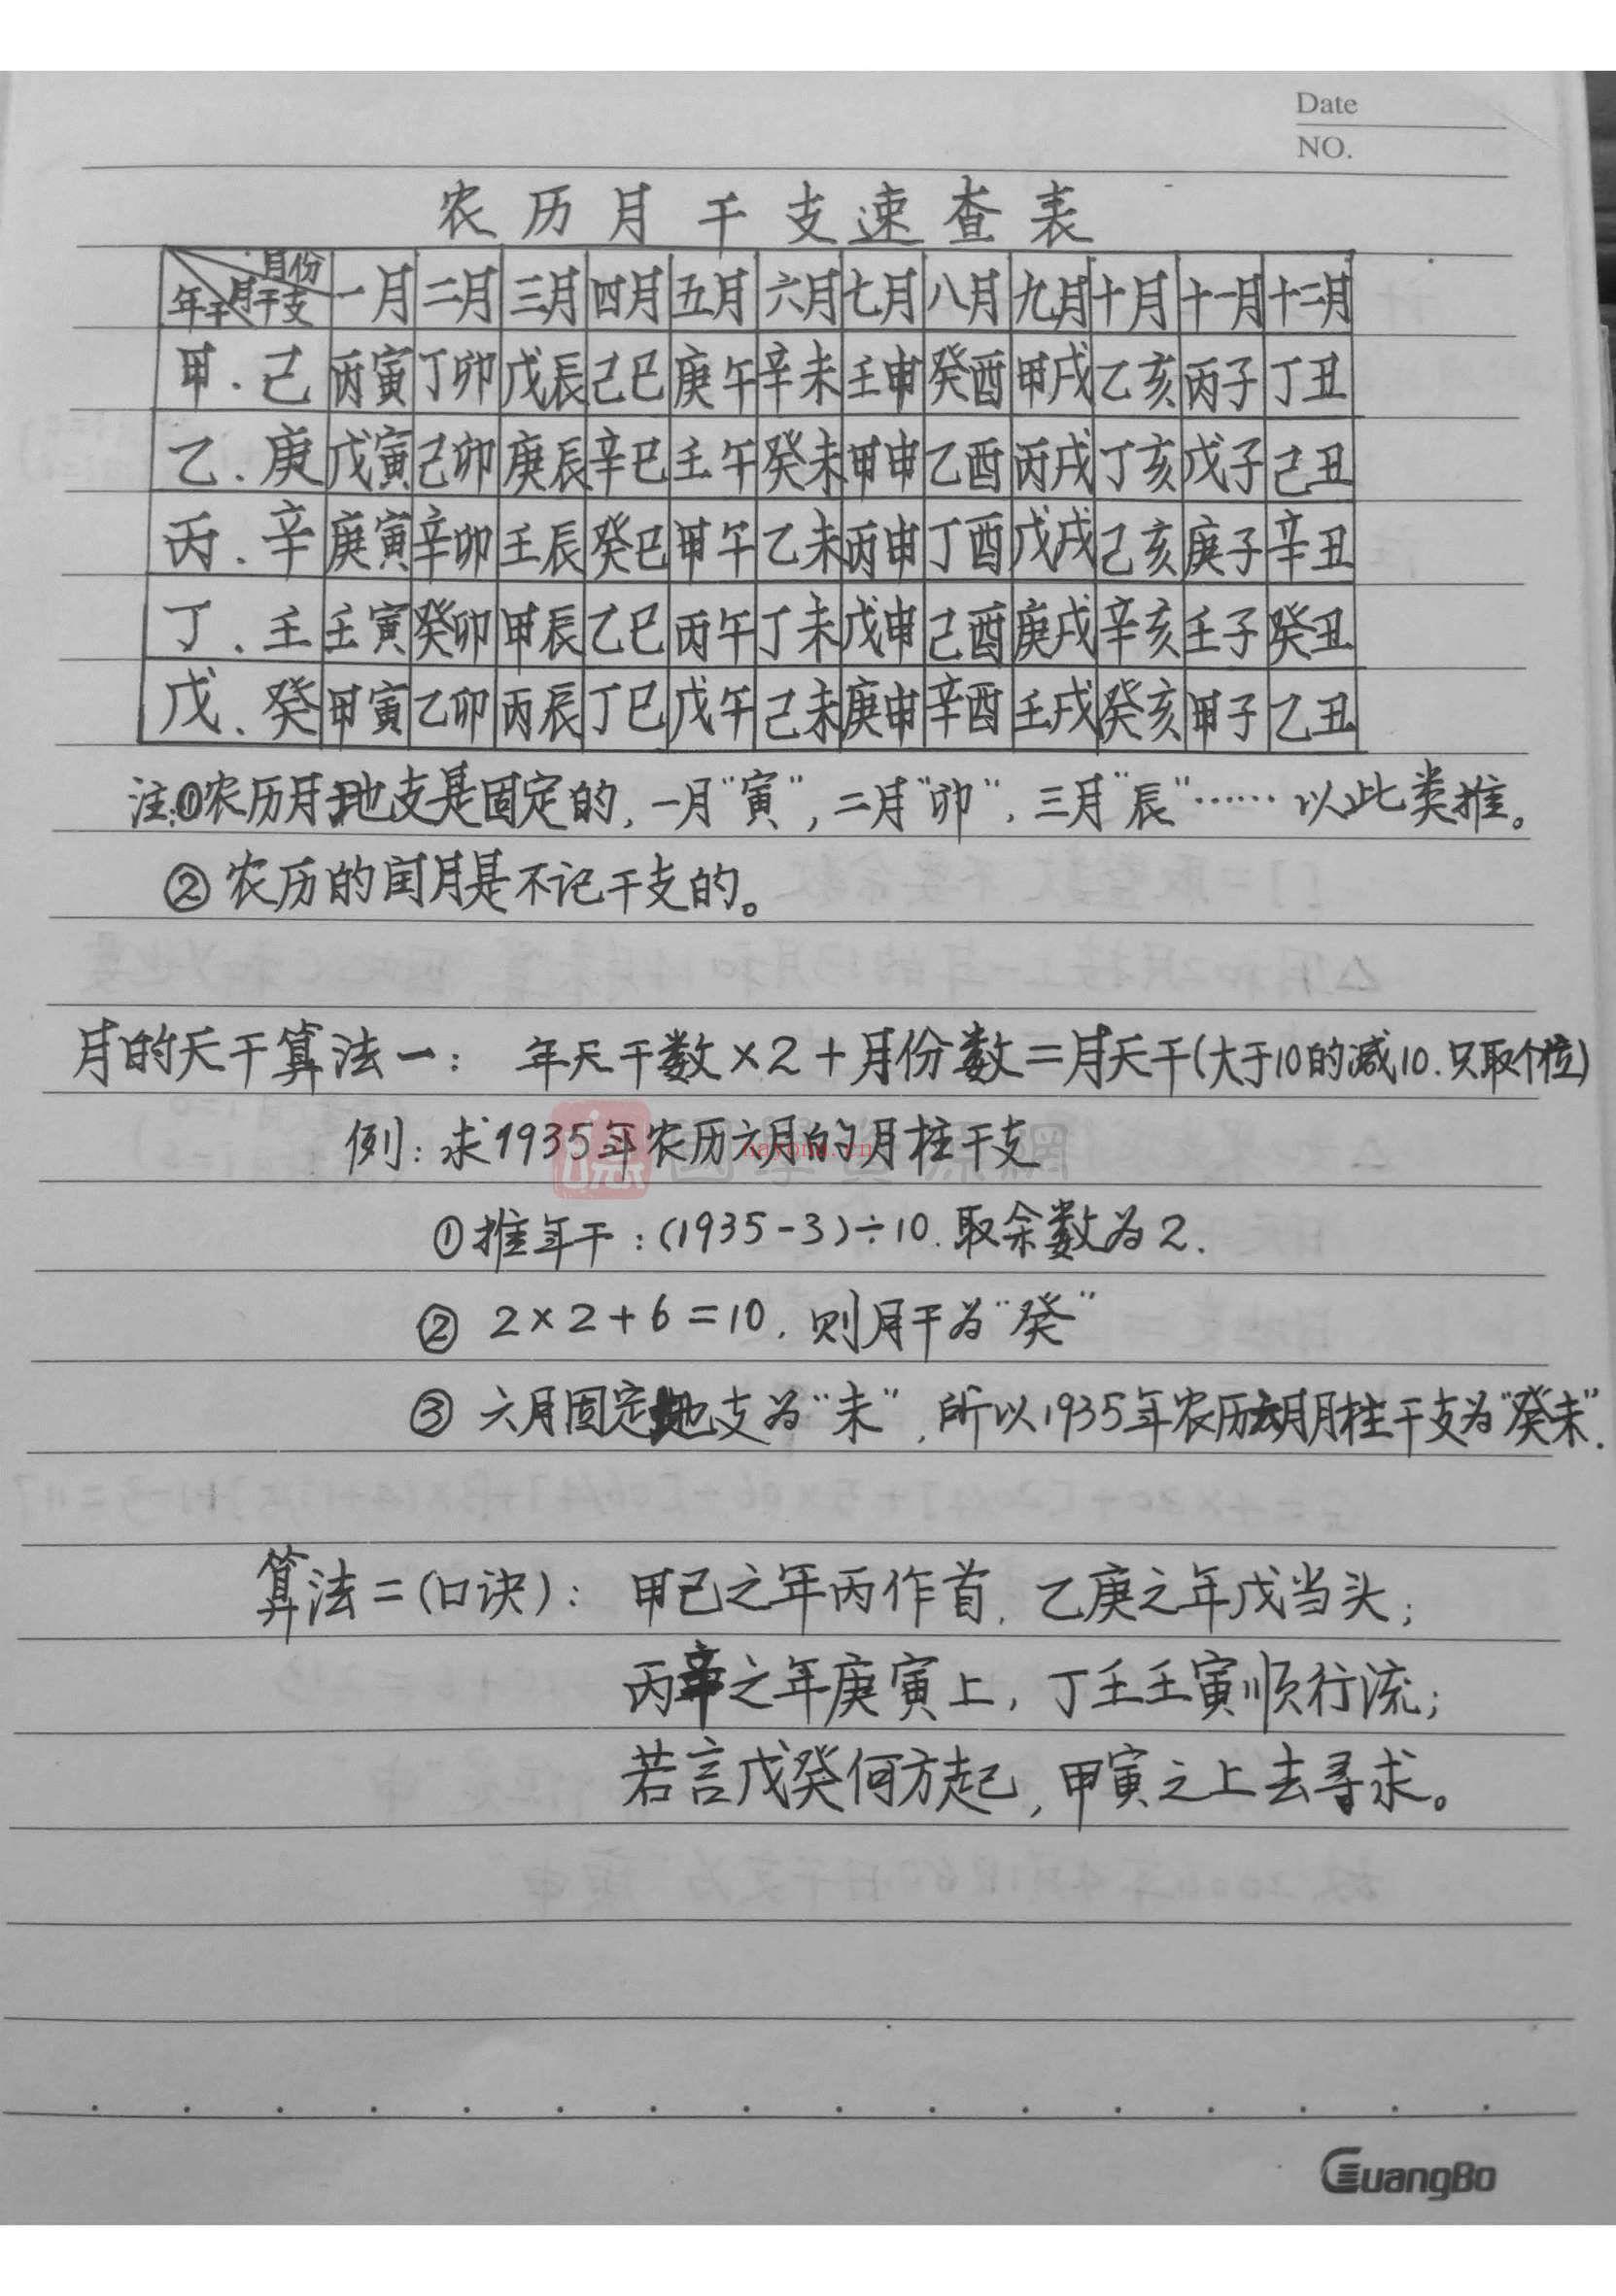 Date
NO.
农历月干支速查表
月份 月干支 年干 一月 二月 三月 四月 五月 六月 七月 八月 九月 十月 十一月 十二月
甲.己 丙寅 丁卯 戊辰 己巳 庚午 辛未 壬申 癸酉 甲戌 乙亥 丙子 丁丑
乙.庚 戊寅 己卯 庚辰 辛巳 壬午 癸未 甲申 乙酉 丙戌 丁亥 戊子 己丑
丙.辛 庚寅 辛卯 壬辰 癸巳 甲午 乙未 丙申 丁酉 戊戌 己亥 庚子 辛丑
丁.壬 壬寅 癸卯 甲辰 乙巳 丙午 丁未 戊申 己酉 庚戌 辛亥 壬子 癸丑
戊.癸 甲寅 乙卯 丙辰 丁巳 戊午 己未 庚申 辛酉 壬戌 癸亥 甲子 乙丑
注:①农历月地支是固定的,一月"寅",二月"卯",三月"辰"……以此类推。
②农历的闰月是不记干支的。
月的天干算法一: 年天干数×2+月份数=月天干(大于10的减10.只取个位)
例:求1935年农历六月的月柱干支
nayona.cn
①推年干:(1935-3)÷10.取余数为2.
② 2×2+6=10.则月干为"癸"
③ 六月固定地支为"未",所以1935年农历六月月柱干支为"癸未".
算法二(口诀): 甲己之年丙作首,乙庚之年戊当头;
丙辛之年庚寅上,丁壬壬寅顺行流;
若言戊癸何方起,甲寅之上去寻求。
GuangBo